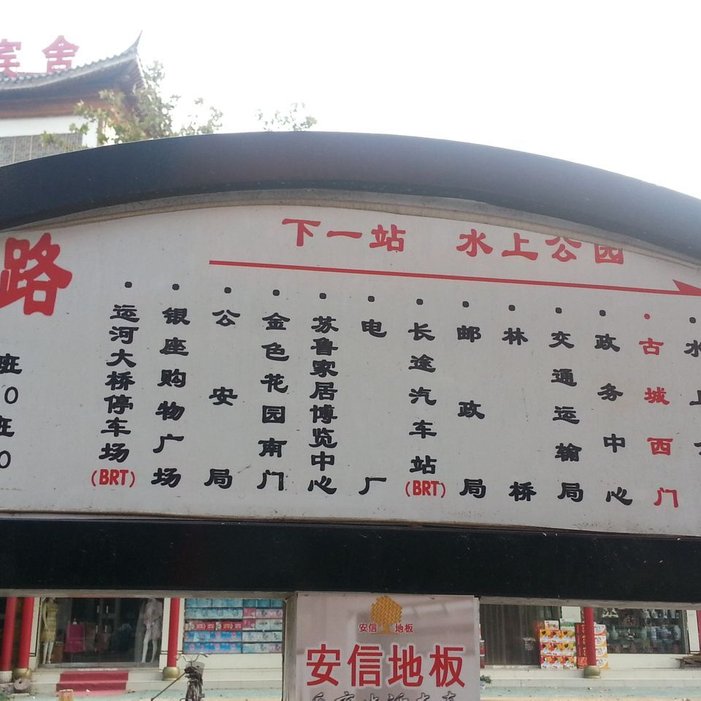 宾舍
下一站 水上公园
路
班
0
班
0
运河大桥停车场(BRT)
银座购物广场
公安局
金色花园南门
苏鲁家居博览中心
电厂
长途汽车站(BRT)
邮政局
林桥
交通运输局
政务中心
古城西门
水上
安信地板
安信地板